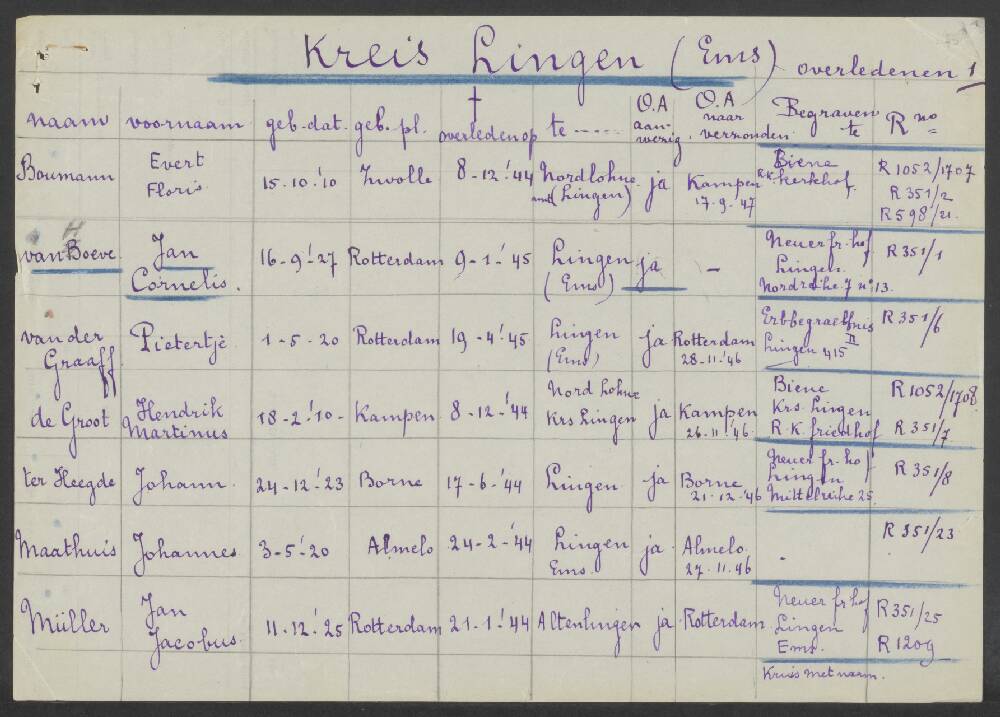 Kreis Lingen (Ems) overledenen 1
naam voornaam geb-dat. geb. pl. † overleden op te ----- O.A aan-wezig O.A naar verzonden. Begraven te R no=
Boumann Evert Floris. 15-10-'10 Zwolle 8-12-'44 Nordlohne (Lingen) ja Kampen 17-9-'47 Biene R.K. Kerkhof. R 1052/1707 R 351/2 R 598/21.
H
van Boeve Jan Cornelis. 16-9-'27 Rotterdam 9-1-'45 Lingen (Ems) ja - Neuer fr. hof Lingen. Nordreihe 7 no 13. R 351/1
van der Graaff Pietertje 1-5-20 Rotterdam 19-4-'45 Lingen (Ems) ja Rotterdam 28-11-'46 Erbbegraebnis Lingen 415 II R 351/6
de Groot Hendrik Martinus 18-2-'10- Kampen 8-12-'44 Nord Lohne Krs Lingen ja Kampen 26-11-'46 Biene Krs. Lingen R.K. friedhof R 1052/1708 R 351/7
ter Heegde Johann. 24-12-'23 Borne 17-6-'44 Lingen ja Borne 21-12-'46 Neuer fr. hof Lingen Mittelreihe 25. R 351/8
Maathuis Johannes 3-5-'20 Almelo 24-2-'44 Lingen Ems. ja Almelo. 27-11-46 - R 351/23
Müller Jan Jacobus. 11-12-'25 Rotterdam 21-1-'44 Altenlingen ja Rotterdam Neuer fr. hof Lingen Ems. R 351/25 R 1209
Kruis met naam.